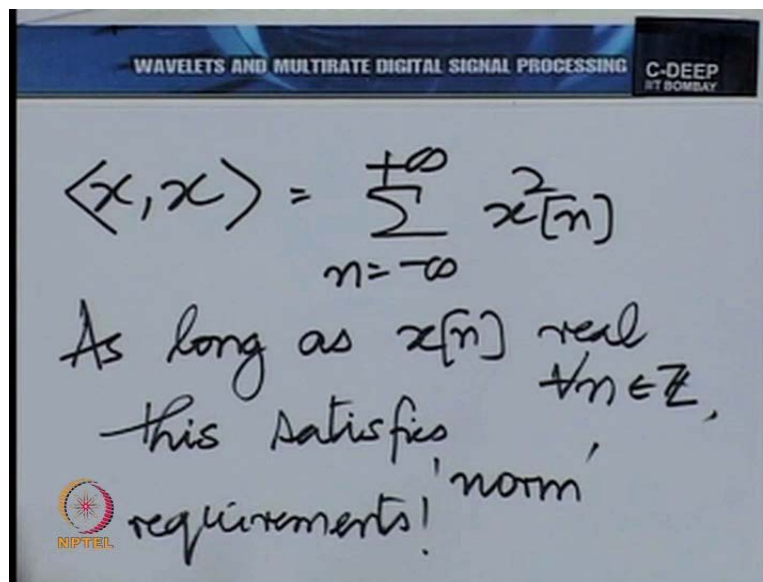 WAVELETS AND MULTIRATE DIGITAL SIGNAL PROCESSING
C-DEEP
IIT BOMBAY
⟨x, x⟩ = +∞ Σ n=-∞ x²[n]
As long as x[n] real
∀n ∈ ℤ,
this satisfies
'norm'
requirements!
NPTEL